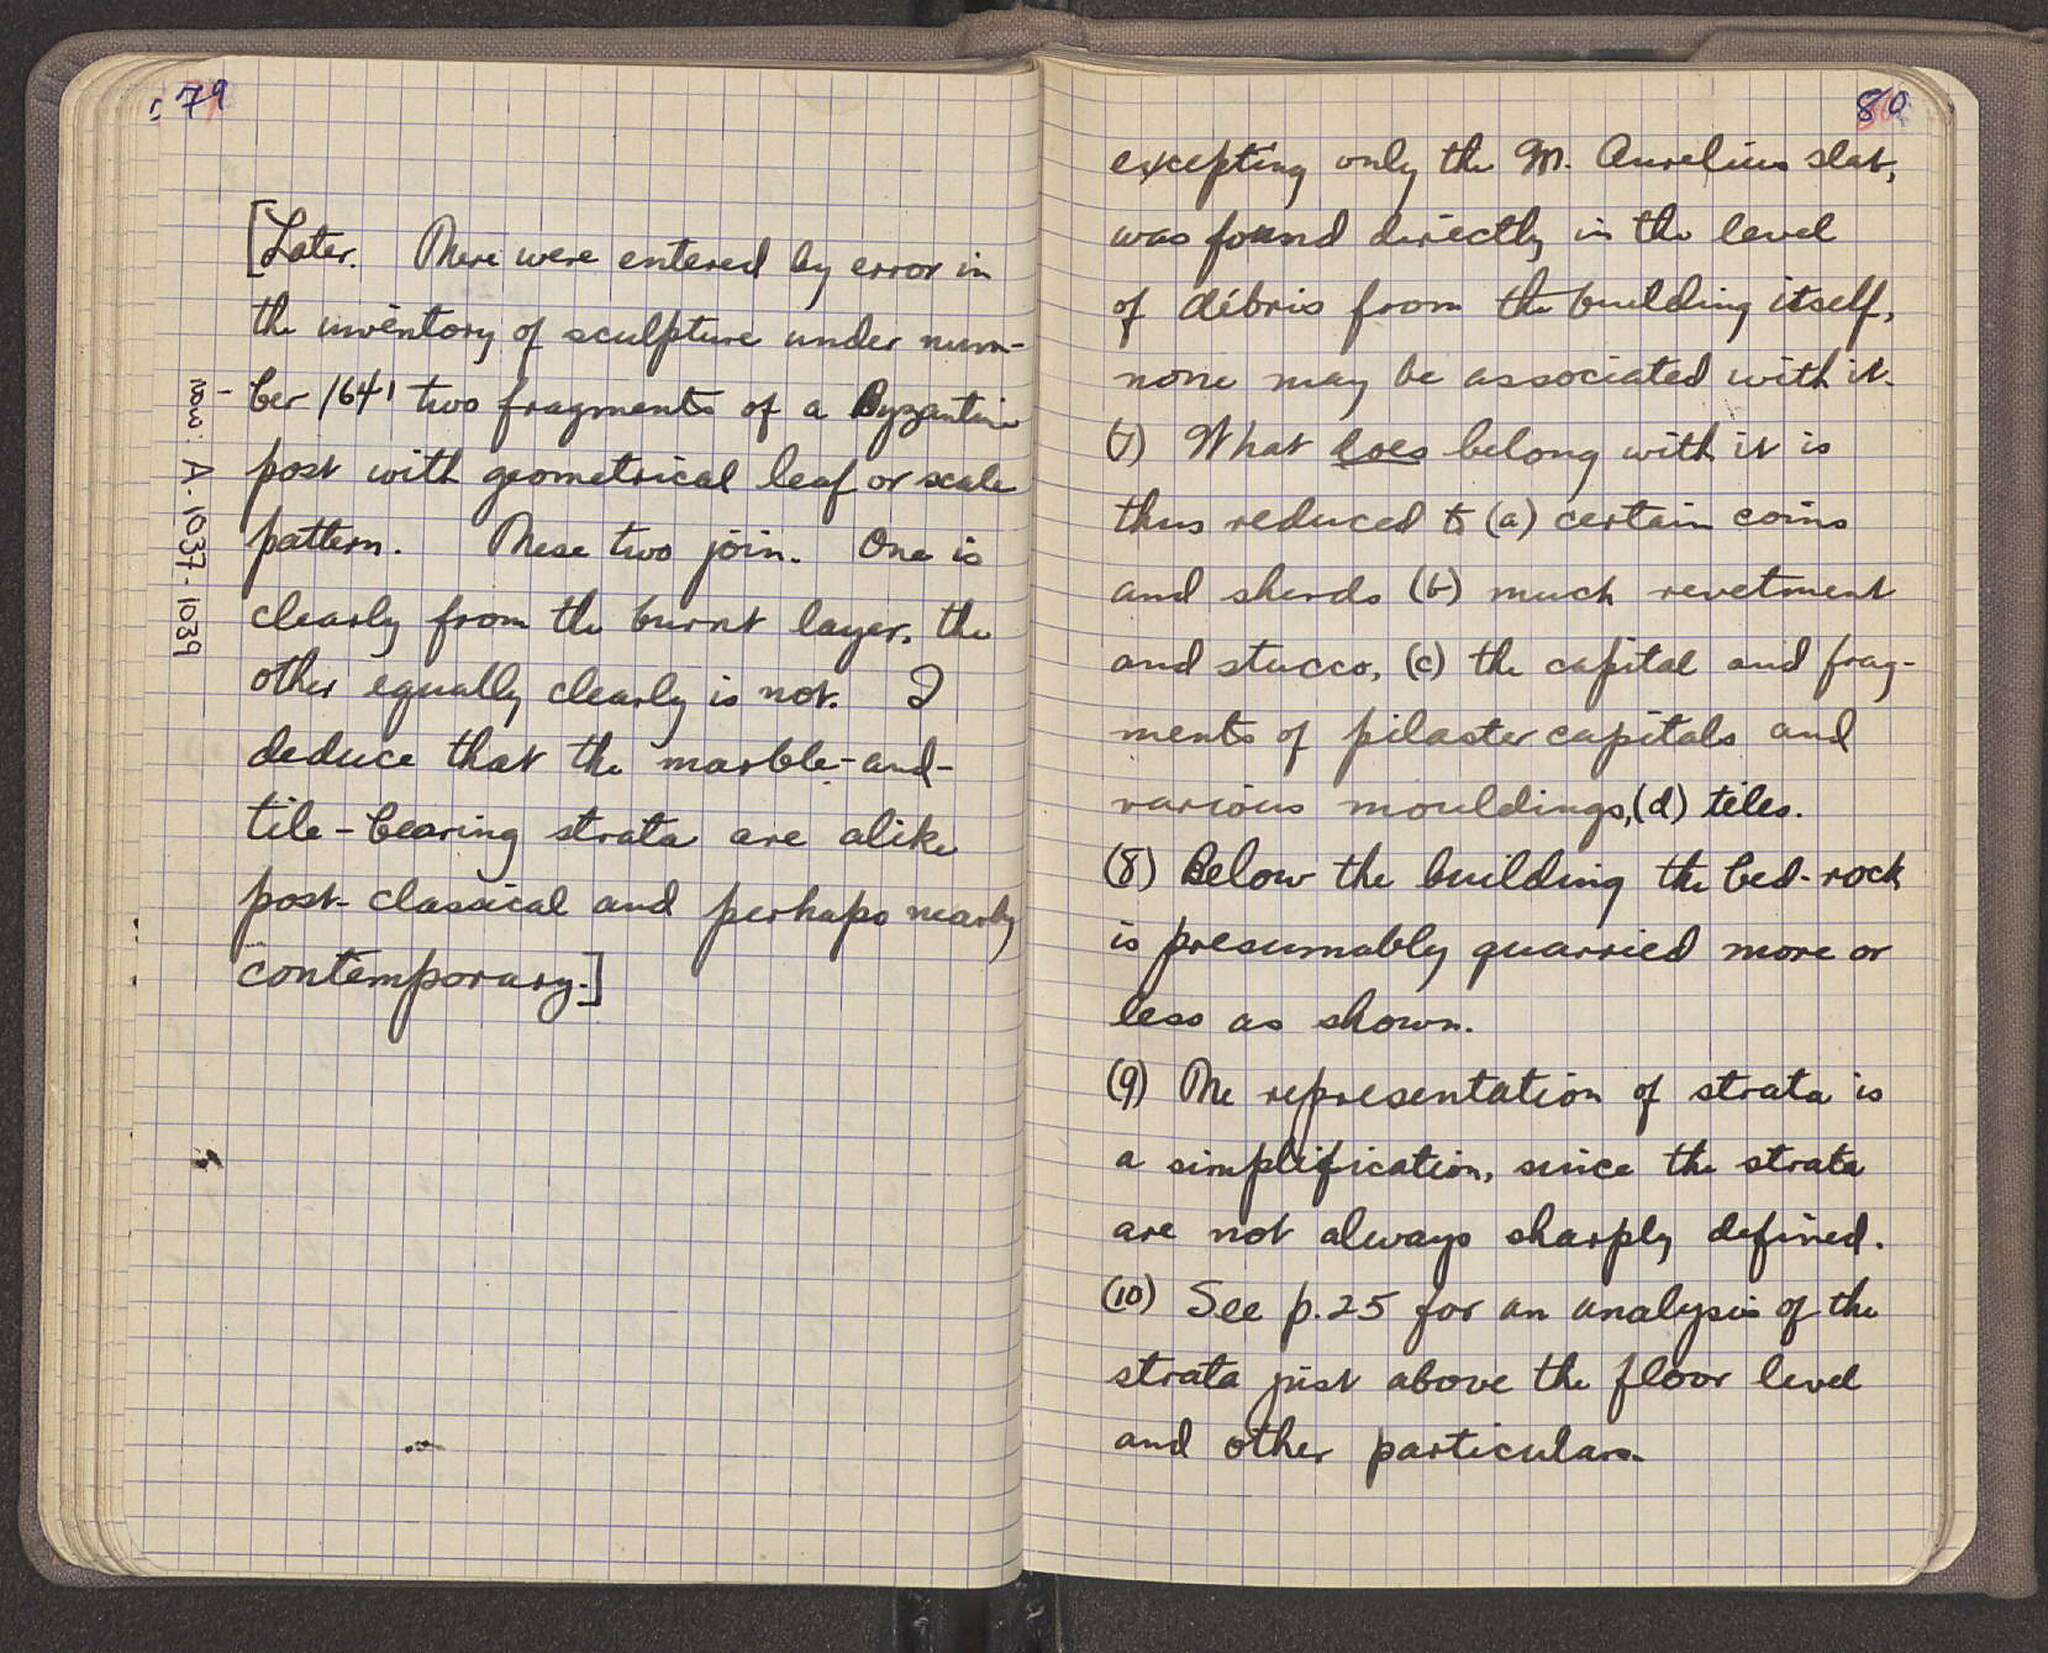 79
[Later. There were entered by error in
the inventory of sculpture under num-
ber 1641 two fragments of a Byzantine
post with geometrical leaf or scale
pattern. These two join. One is
clearly from the burnt layer, the
other equally clearly is not. I
deduce that the marble-and-
tile-bearing strata are alike
post-classical and perhaps nearly
contemporary.]
now: A. 1037-1039
80
excepting only the M. Aurelius slab,
was found directly in the level
of débris from the building itself,
none may be associated with it.
(7) What does belong with it is
thus reduced to (a) certain coins
and sherds (b) much revetment
and stucco, (c) the capital and frag-
ments of pilaster capitals and
various mouldings, (d) tiles.
(8) Below the building the bed-rock
is presumably quarried more or
less as shown.
(9) The representation of strata is
a simplification, since the strata
are not always sharply defined.
(10) See p. 25 for an analysis of the
strata just above the floor level
and other particulars.